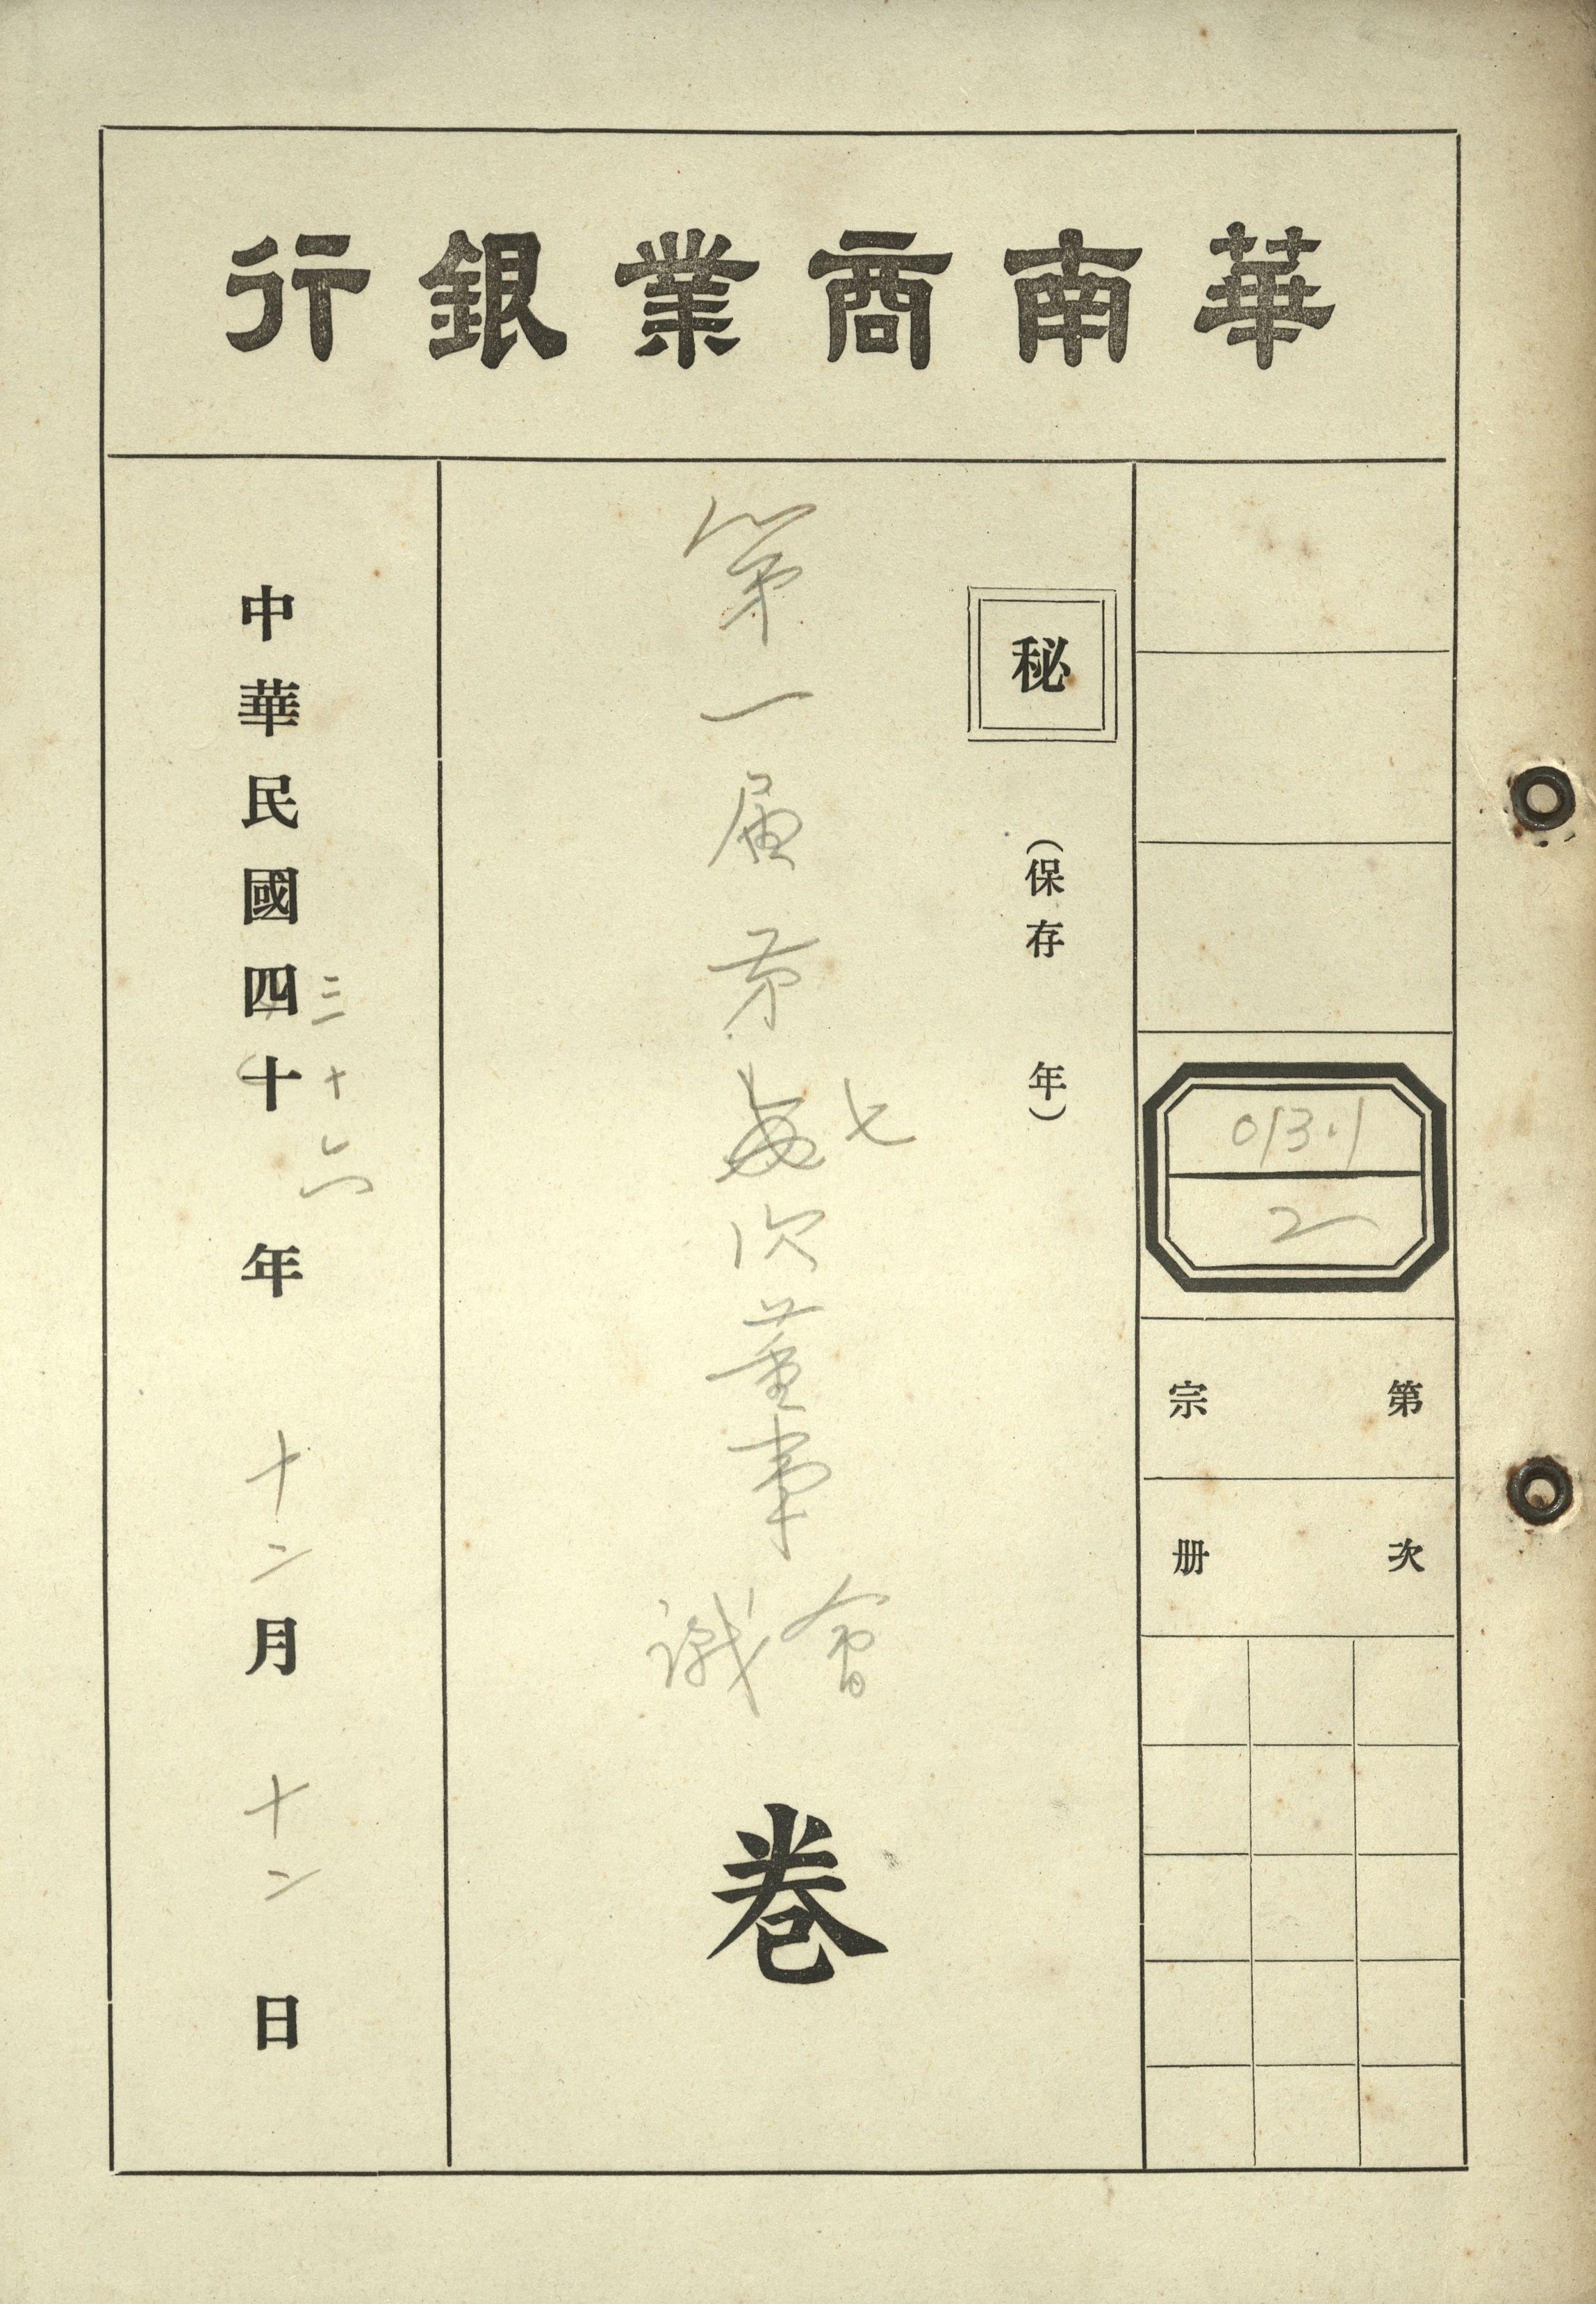 華南商業銀行
013.1
2
第　宗
次　册
秘
（保存　年）
第一届第七次董事會議
卷
中華民國四十年十二月十二日
三十六